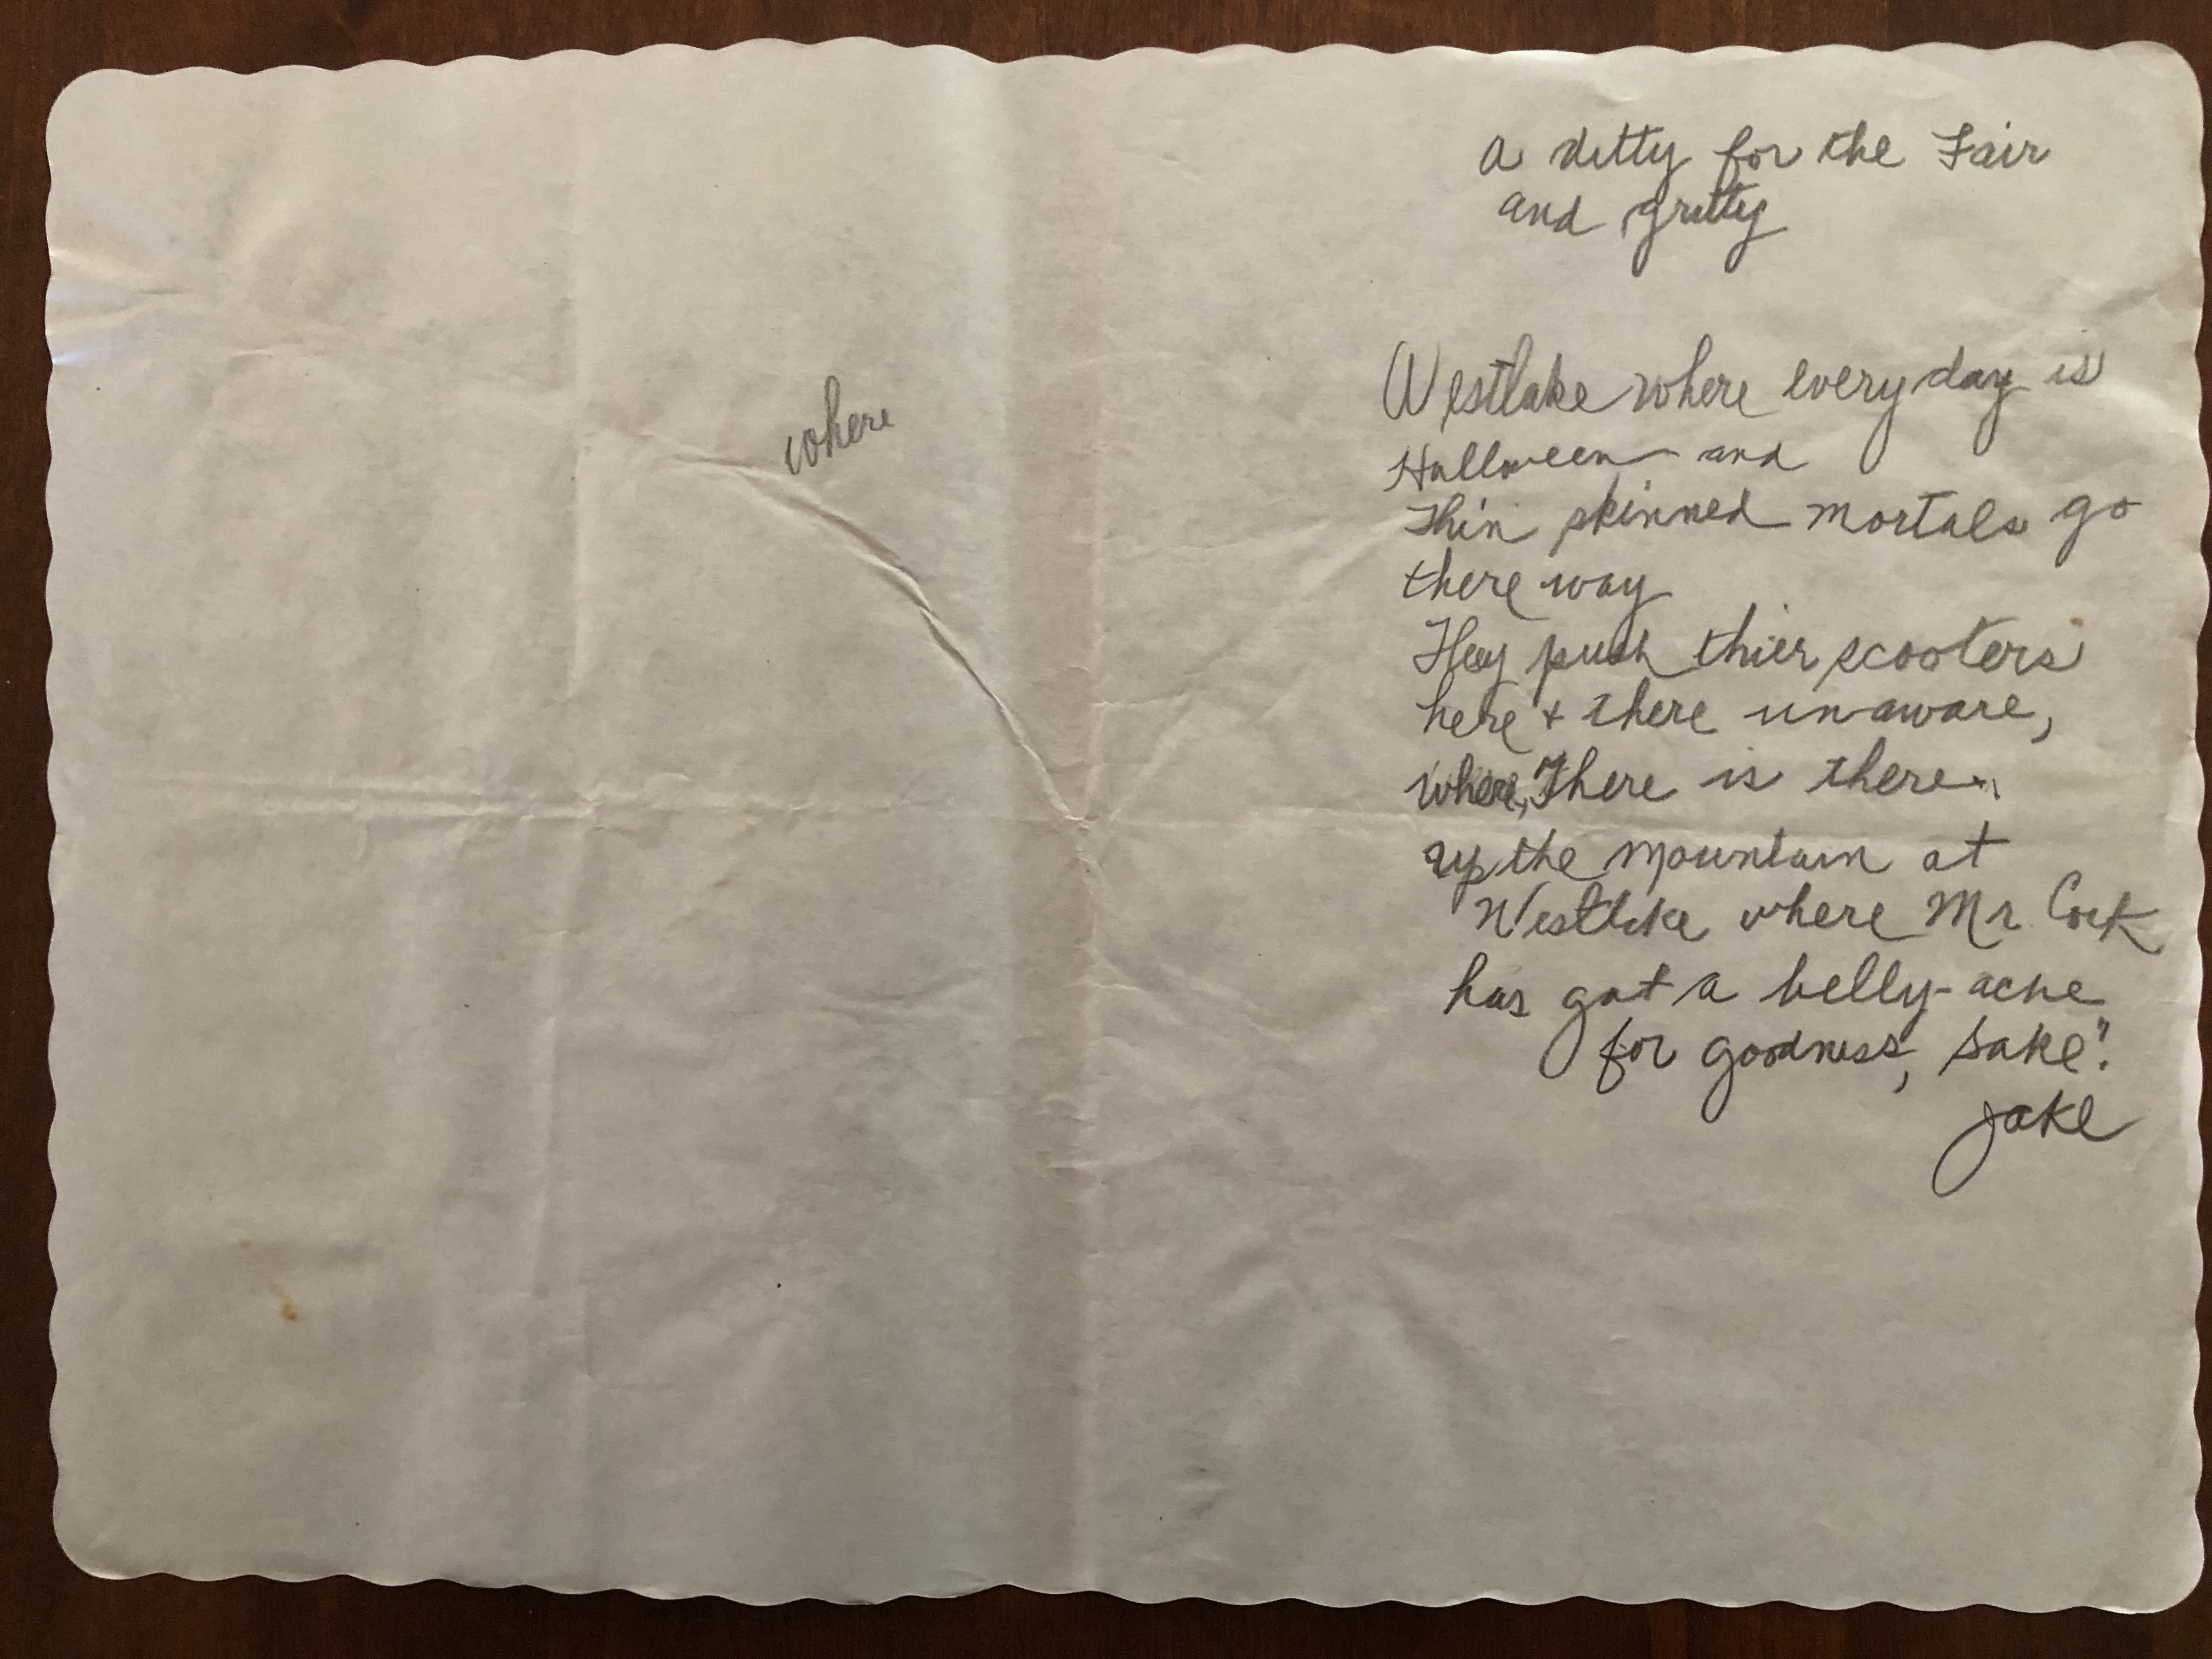 a ditty for the Fair
and gritty
where
Westlake where everyday is
Halloween and
Thin skinned mortals go
there way
They push thier scooters
here + there unaware,
where, There is there..
up the mountain at
Westlake where Mr
has got a belly-ache
for goodness, sake".
Jake